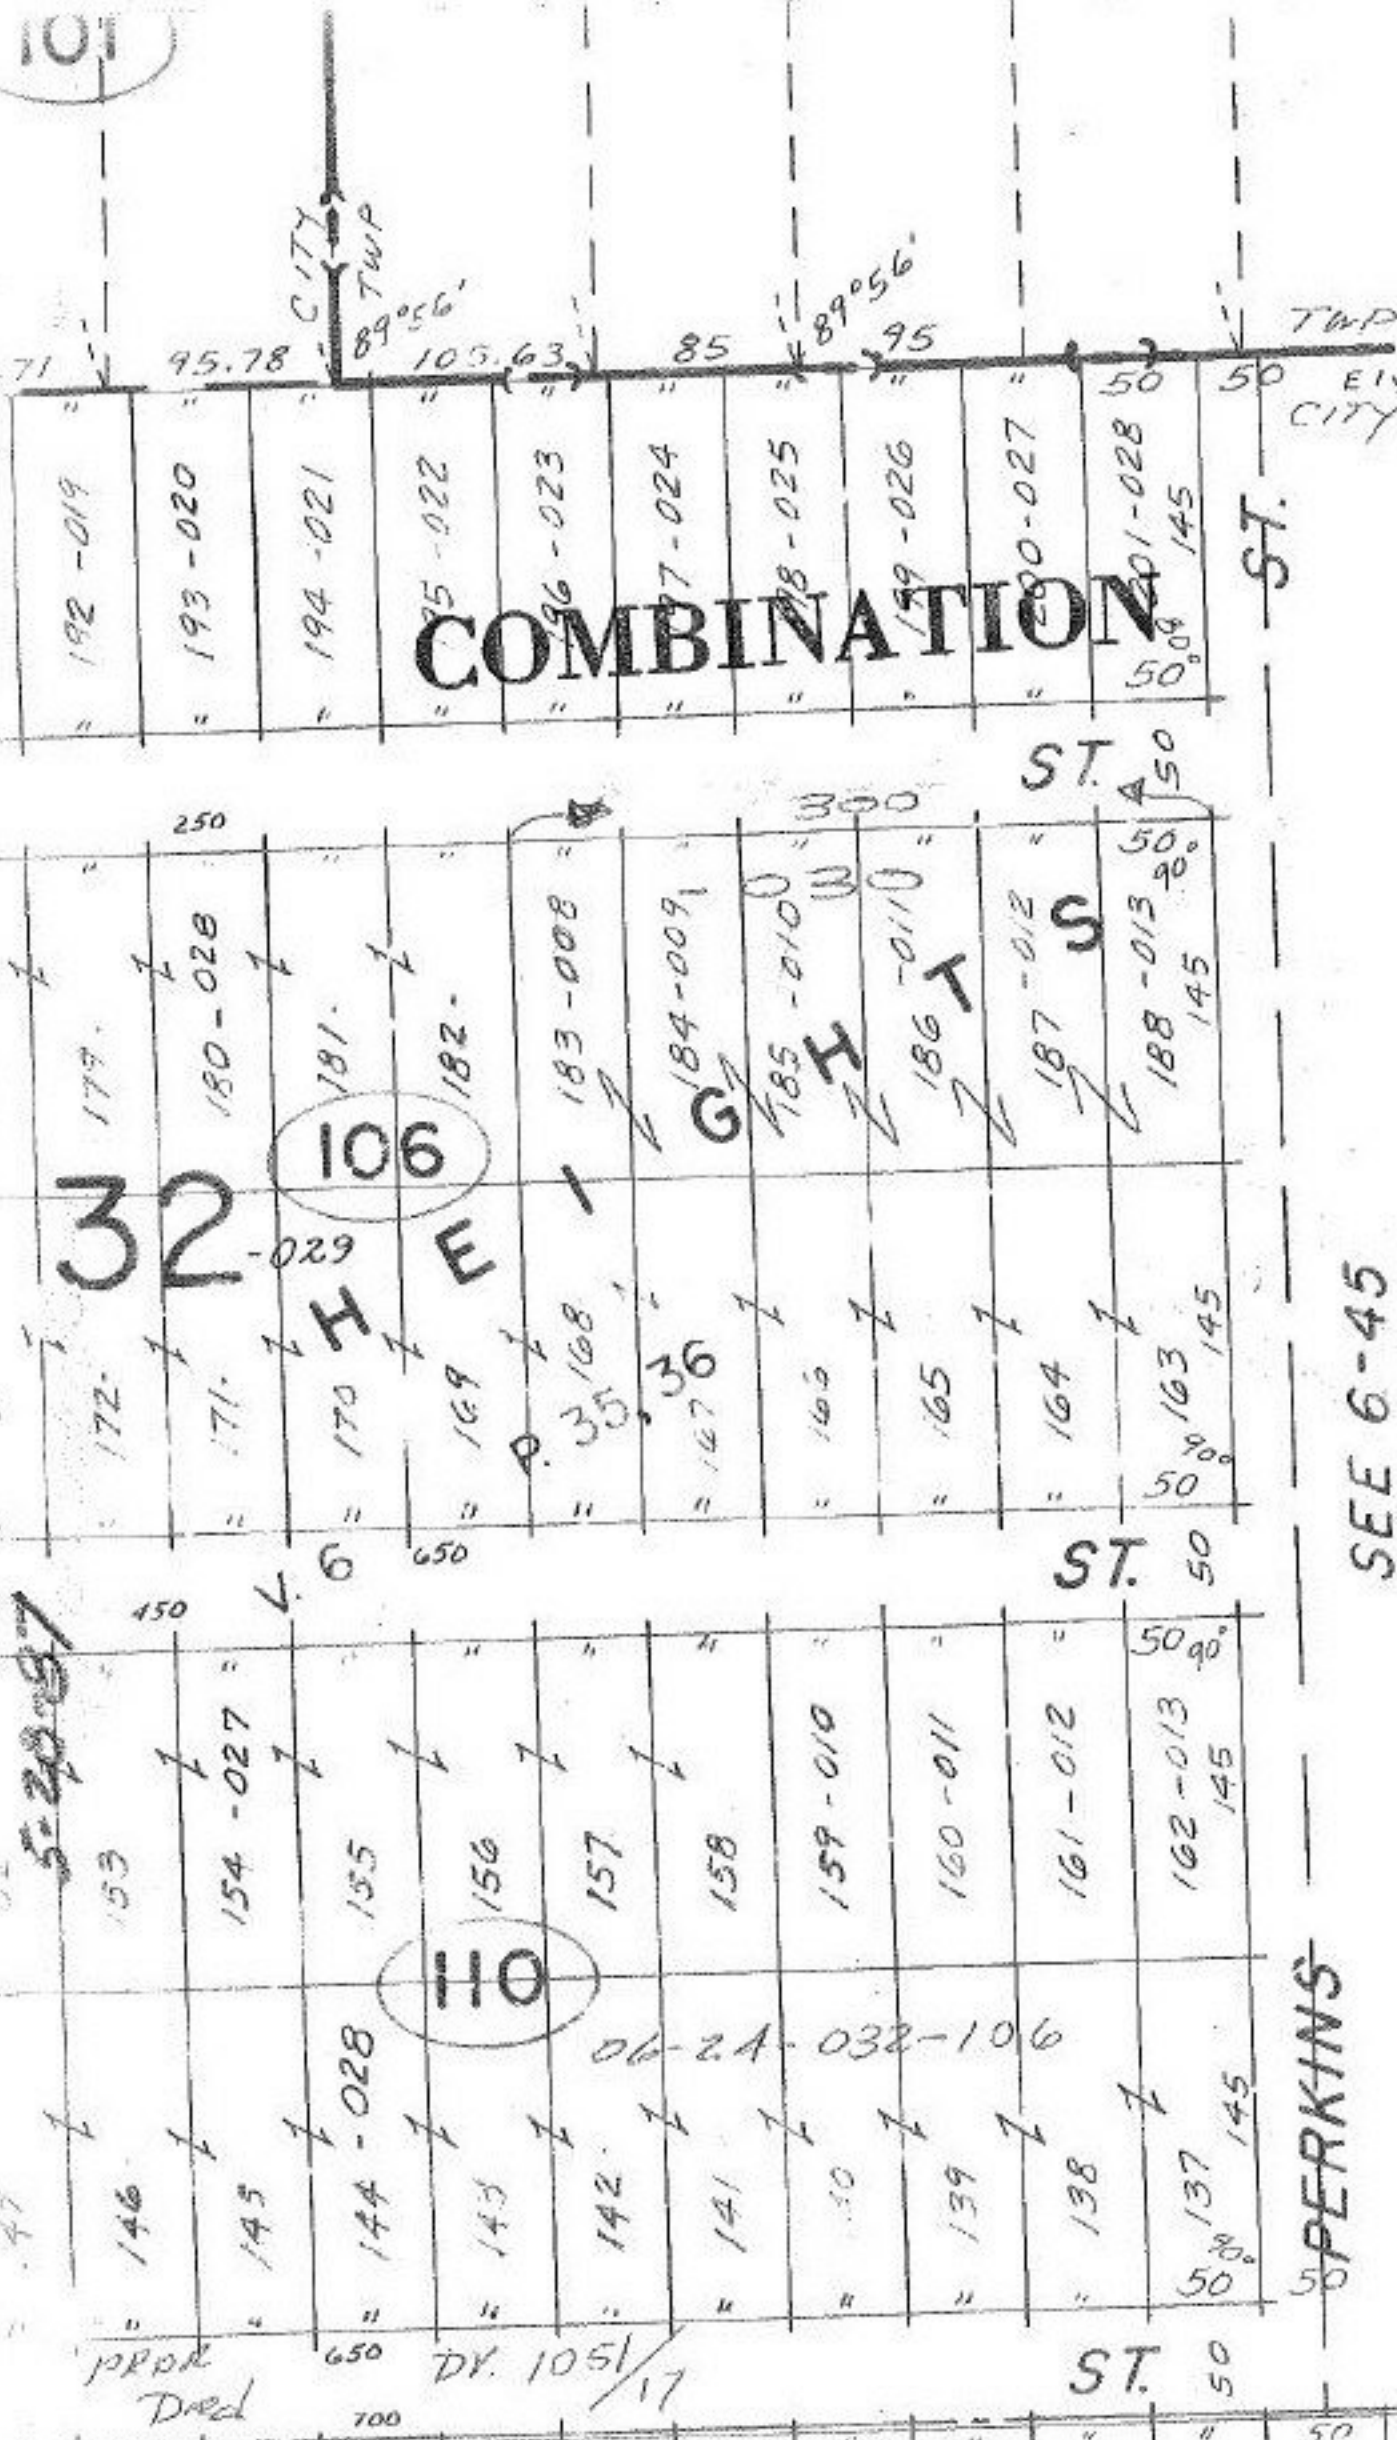 101
CITY
TWP
89°56'
89°56'
71 95.78 105.63 85 95 TWP
50 50
CITY
192-019
193-020
194-021
95-022
196-023
97-024
98-025
199-026
200-027
201-028
145
50°
ST.
COMBINATION
ST. 50
250 300
50
90°
030
179.
180-028
181.
182.
183-008
184-009
185-010
186-011
187-012
188-013
145
106
32
-029
HEIGHTS
172.
171.
170
169
168
167
166
165
164
163
145
90°
50
P. 35, 36
SEE 6-45
V. 6
650
ST. 50
5-20-87
450
50 90°
153
154-027
155
156
157
158
159-010
160-011
161-012
162-013
145
110
06-2A-032-106
47
146
145
144-028
143
142.
141
139
138
137
145
90°
50
50
PERKINS
650
DV. 1051/17
ST. 50
700
50